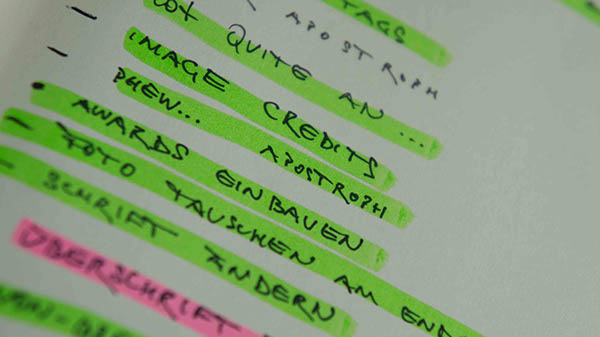 TAGS
APOSTROPH
NOT QUITE AN ...
IMAGE CREDITS
PHEW... APOSTROPH
- AWARDS EINBAUEN
- FOTO TAUSCHEN AM END
- SCHRIFT ÄNDERN
ÜBERSCHRIFT